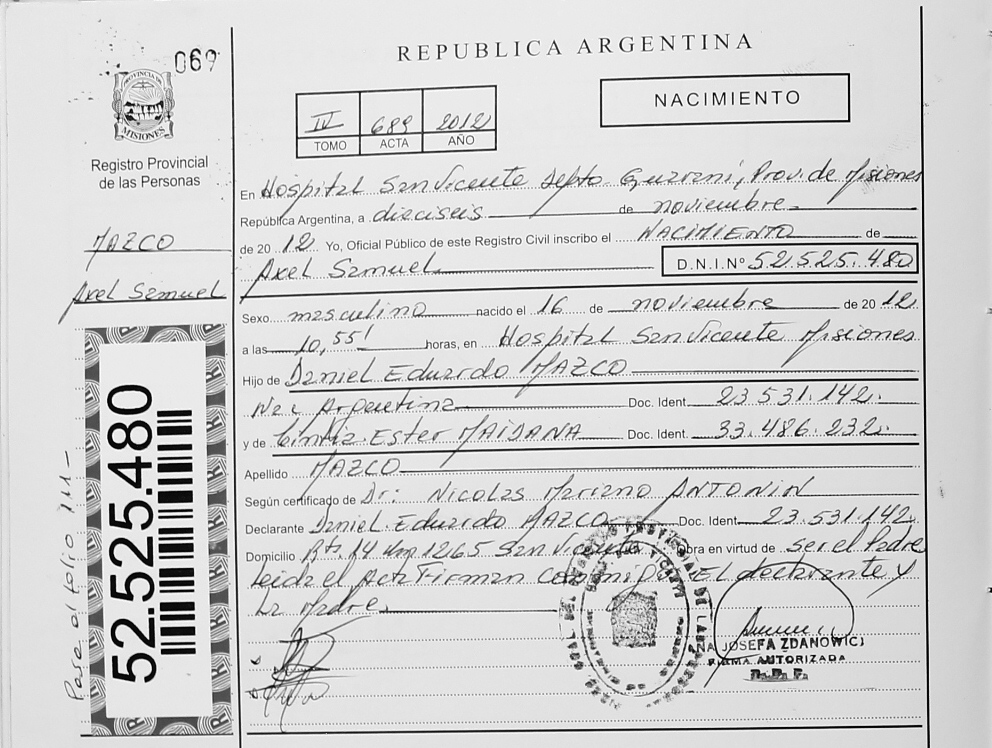 069
REPUBLICA ARGENTINA
PROVINCIA DE
MISIONES
NACIMIENTO
IV 689 2012
TOMO ACTA AÑO
Registro Provincial
de las Personas
MAZCO
Axel Samuel
En Hospital San Vicente Depto Guarani, Prov. de Misiones
República Argentina, a dieciseis de noviembre
de 2012 Yo, Oficial Público de este Registro Civil inscribo el NACIMIENTO de
Axel Samuel D.N.I.Nº 52.525.480
Sexo masculino nacido el 16 de noviembre de 2012
a las 10,55' horas, en Hospital San Vicente Misiones
Hijo de Daniel Eduardo MAZCO
Nac Argentina Doc. Ident. 23.531.142.
y de Cintia Ester MAIDANA Doc. Ident. 33.486.232.
Apellido MAZCO
Según certificado de Dr: Nicolas Mariano ANTONIN
Declarante Daniel Eduardo MAZCO Doc. Ident. 23.531.142.
Domicilio Rta. 14 Km 1265 San Vicente Obra en virtud de ser el Padre
Leida el Acta Firman Conmigo El declarante y
La Madre
JOSEFA ZDANOWICZ
FIRMA AUTORIZADA
52.525.480
Pase al folio